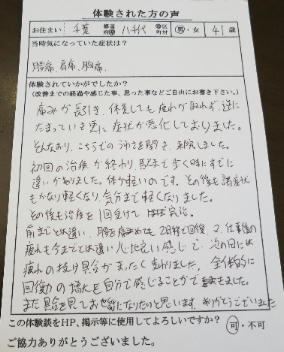 体験された方の声
お住まい: 千葉 都道府県 八千代 市区町村 男・女 41 歳
当時気になっていた症状は?
腰痛、肩痛、胸痛
体験されていかがでしたか?
(改善までの経過や感じた事、思った事などご自由にお書き下さい。)
痛みが長引き、休息しても疲れが取れず、逆に
たまっていき更に症状が悪化しておりました。
そんなおり、こちらの を聞き、来院しました。
初回の治療が終わり、駅まで歩く時にすぐに
違いがありました。体が軽いのです。その後も諸症状
もかなり軽くなり、気分まで軽くなりました。
その後も治療を1回受けて ほぼ完治。
前までとは違い、腰を痛めても2日程で回復、又、仕事後の
疲れも今までとは違い、心地良い感じで、次の日には
疲れの抜け具合がまったく変わりました。全体的に
回復力の 大を自分で感じることができました。
また具合を見てお世話になりたいと思います。ありがとうございました
この体験談をHP、掲示等に使用してよろしいですか? 可・不可
ご協力ありがとうございました。